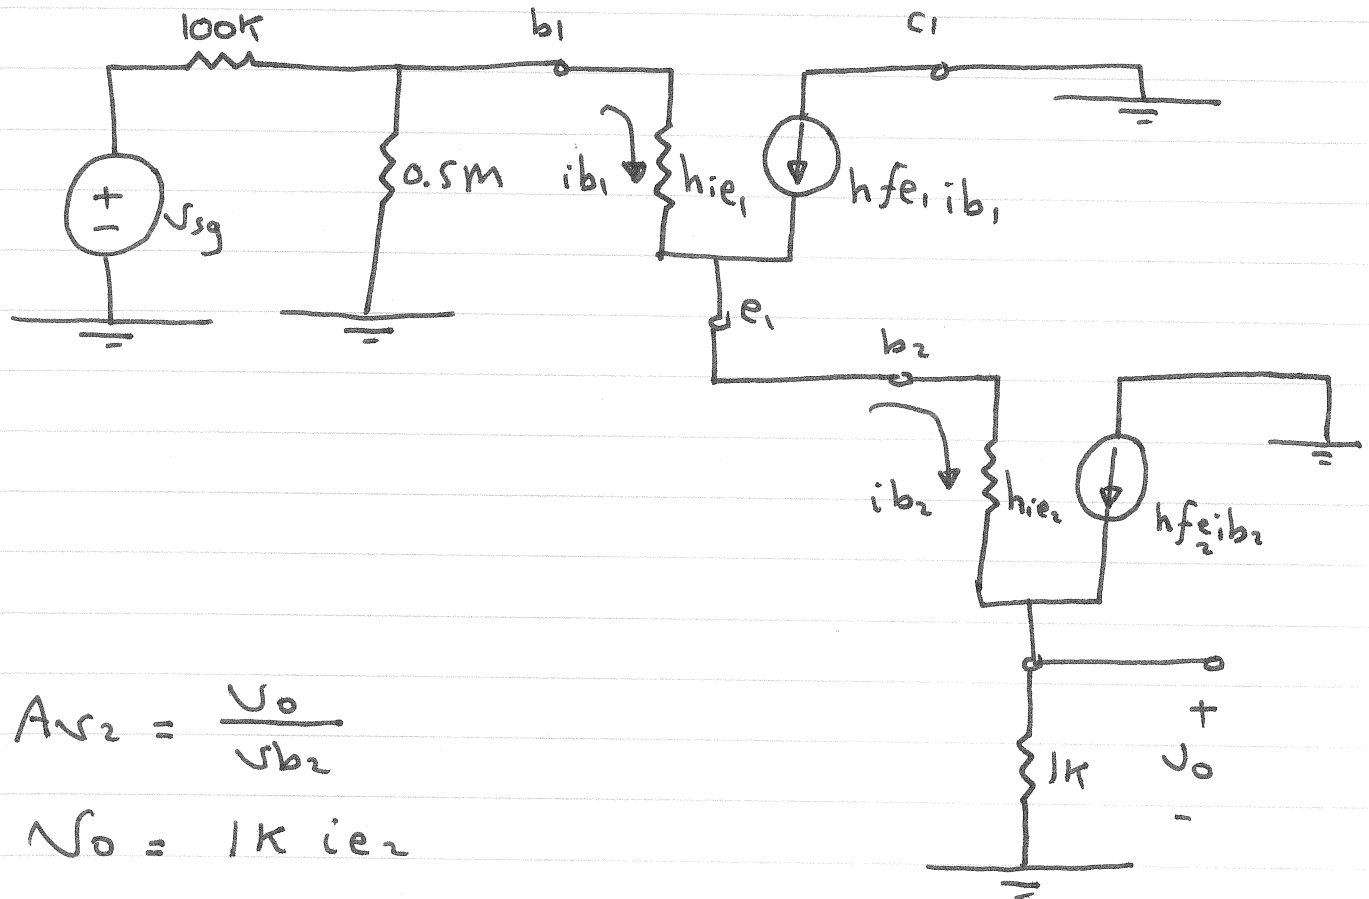 100K
b1
c1
+
-
vsg
0.5M
ib1
hie1
hfe1 ib1
e1
b2
ib2
hie2
hfe2 ib2
Av2 = vo / vb2
vo = 1K ie2
1K
+
vo
-